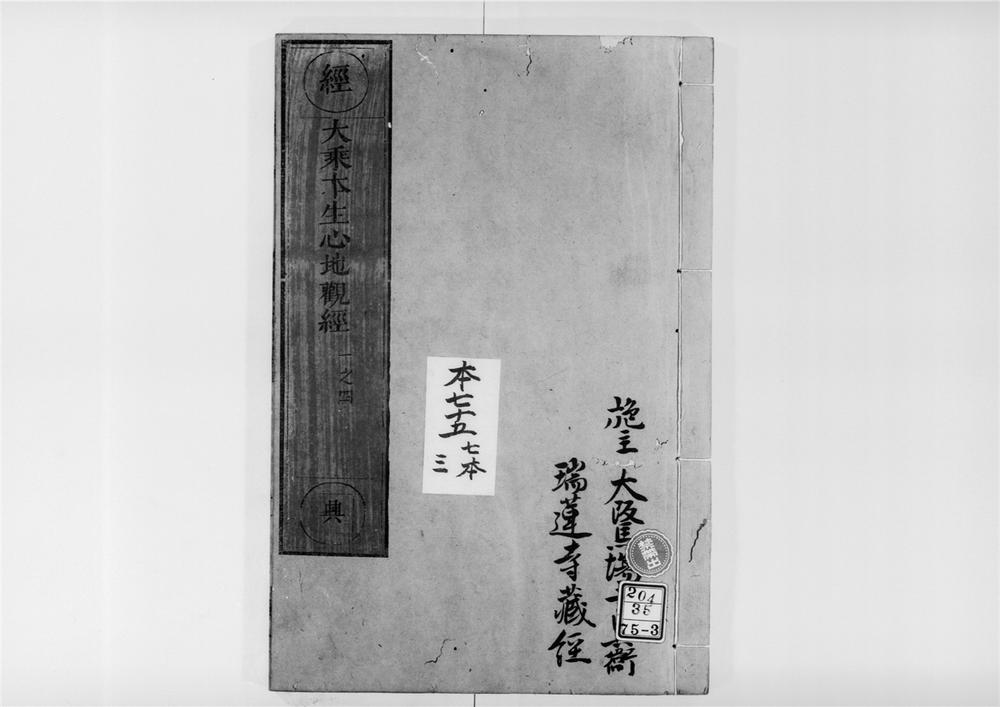 經
大乘本生心地觀經
一之四
典
本七十五
七本
三
施主 大
瑞蓮寺藏經
禁帶出
204
35
75-3